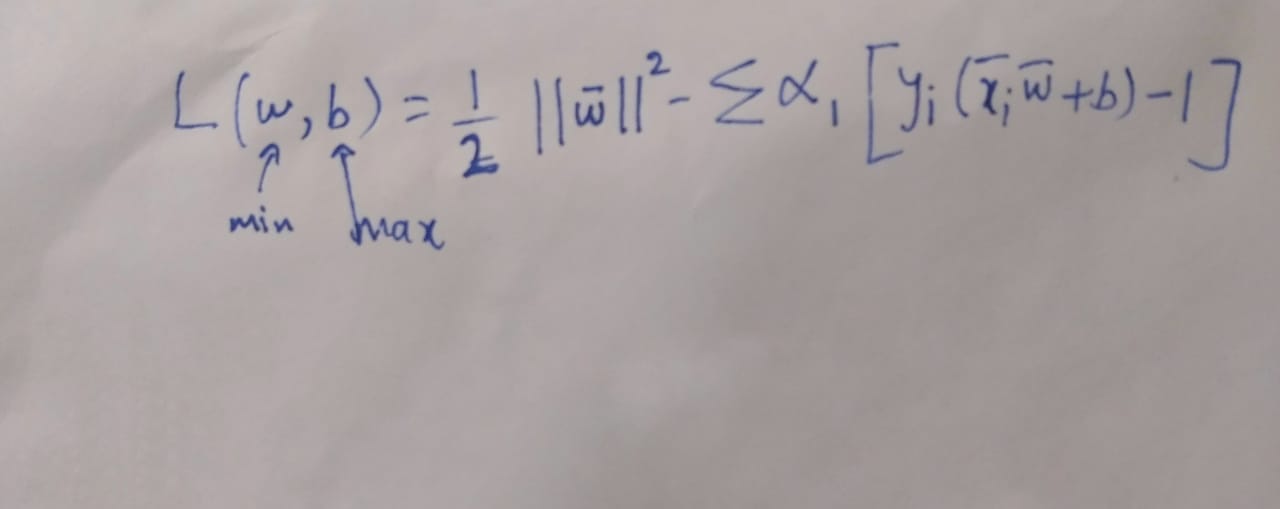 L(w,b) = 1/2 ||w̄||² - Σαᵢ [yᵢ(x̄ᵢw̄+b)-1]
min max